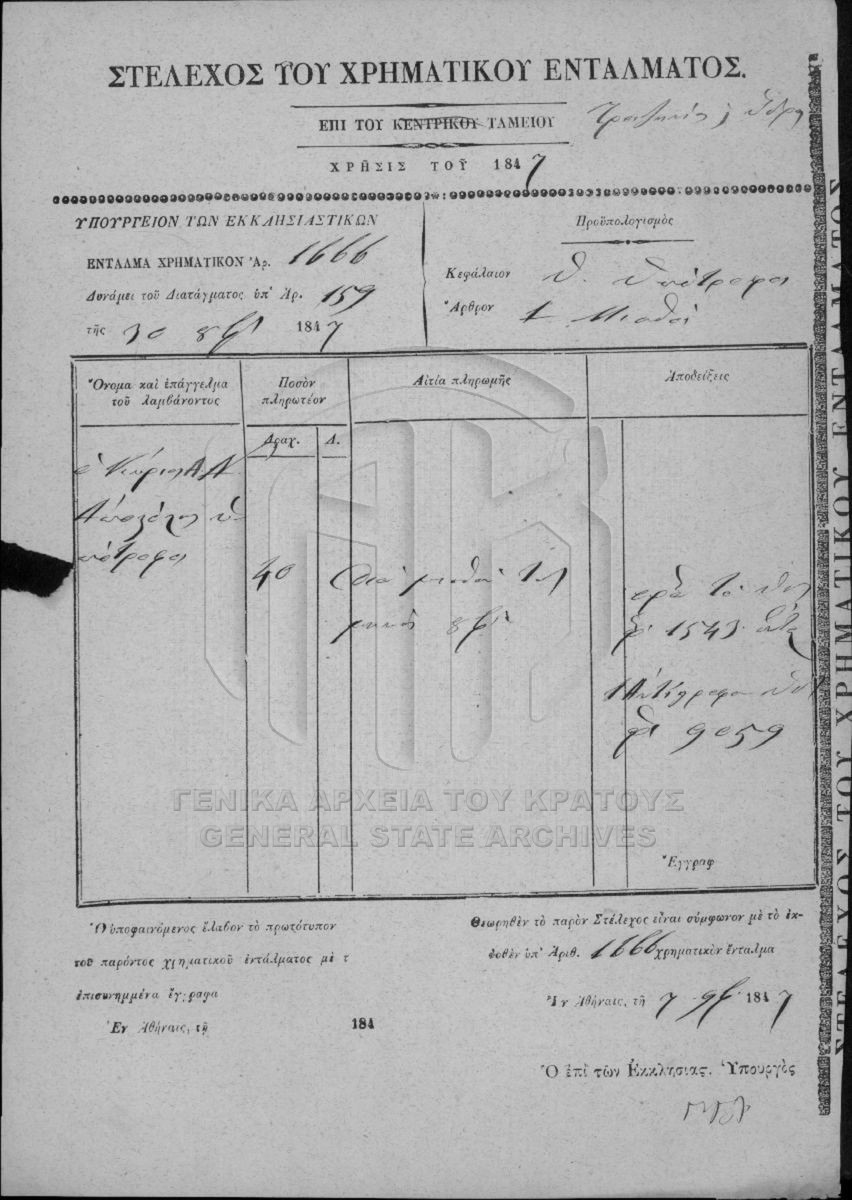 ΣΤΕΛΕΧΟΣ ΤΟΥ ΧΡΗΜΑΤΙΚΟΥ ΕΝΤΑΛΜΑΤΟΣ.
ΕΠΙ ΤΟΥ ΚΕΝΤΡΙΚΟΥ ΤΑΜΕΙΟΥ
ΧΡΗΣΙΣ ΤΟΥ 1847
ΥΠΟΥΡΓΕΙΟΝ ΤΩΝ ΕΚΚΛΗΣΙΑΣΤΙΚΩΝ
ΕΝΤΑΛΜΑ ΧΡΗΜΑΤΙΚΟΝ Ἀρ. 1666
Δυνάμει τοῦ Διατάγματος ὑπ' Ἀρ. 159
τῆς 30 8βρ 1847
Προϋπολογισμὸς
Κεφάλαιον Θ. Ὑπότροφοι
Ἄρθρον 1. Μισθοὶ
Ὄνομα καὶ ἐπάγγελμα
τοῦ λαμβάνοντος
Ποσὸν
πληρωτέον
Αἰτία πληρωμῆς
Ἀποδείξεις
Δραχ.
Λ.
ὁ Κύριος Α. Ν.
ὑ-
πότροφος
40
Διὰ μισθὸν τοῦ
μηνὸς 8βρ
1543
9059
Ἔγγραφ
ΓΕΝΙΚΑ ΑΡΧΕΙΑ ΤΟΥ ΚΡΑΤΟΥΣ
GENERAL STATE ARCHIVES
Ὁ ὑποφαινόμενος ἔλαβον τὸ πρωτότυπον
τοῦ παρόντος χρηματικοῦ ἐντάλματος μὲ τ
ἐπισυνημμένα ἔγγραφα
Ἐν Ἀθήναις, τῇ 184
Θεωρηθὲν τὸ παρὸν Στέλεχος εἶναι σύμφωνον μὲ τὸ ἐκ-
δοθὲν ὑπ' Ἀριθ. 1666 χρηματικὸν ἔνταλμα
Ἐν Ἀθήναις, τῇ 7 9βρ 1847
Ὁ ἐπὶ τῶν Ἐκκλησιας. Ὑπουργὸς
ΣΤΕΛΕΧΟΣ ΤΟΥ ΧΡΗΜΑΤΙΚΟΥ ΕΝΤΑΛΜΑΤΟΣ